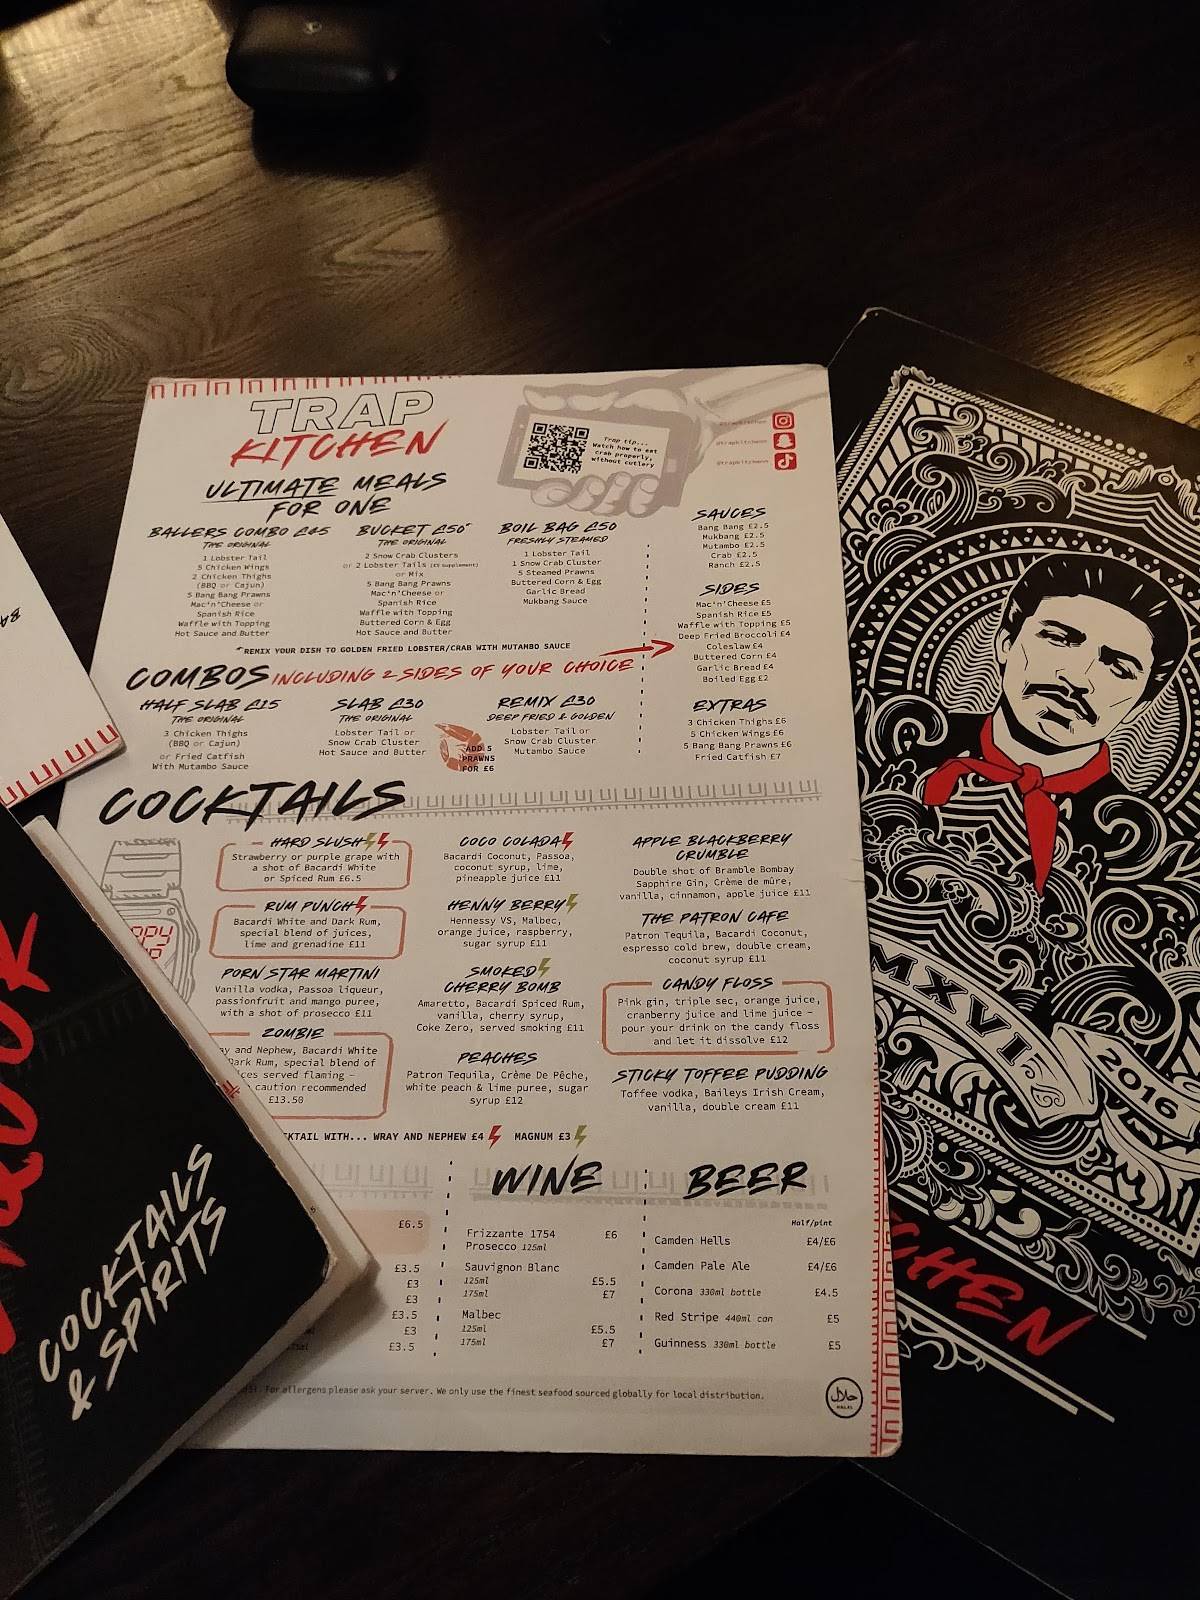 TRAP
KITCHEN
Trap tip...
Watch how to eat
crab properly,
without cutlery
@trapkitchen
@trapkitchenn
@trapkitchenn
ULTIMATE MEALS
FOR ONE
BALLERS COMBO £45
THE ORIGINAL
1 Lobster Tail
5 Chicken Wings
2 Chicken Thighs
(BBQ or Cajun)
5 Bang Bang Prawns
Mac'n'Cheese or
Spanish Rice
Waffle with Topping
Hot Sauce and Butter
BUCKET £50*
THE ORIGINAL
2 Snow Crab Clusters
or 2 Lobster Tails (£5 supplement)
or Mix
5 Bang Bang Prawns
Mac'n'Cheese or
Spanish Rice
Waffle with Topping
Buttered Corn & Egg
Hot Sauce and Butter
BOIL BAG £50
FRESHLY STEAMED
1 Lobster Tail
1 Snow Crab Cluster
5 Steamed Prawns
Buttered Corn & Egg
Garlic Bread
Mukbang Sauce
*REMIX YOUR DISH TO GOLDEN FRIED LOBSTER/CRAB WITH MUTAMBO SAUCE
SAUCES
Bang Bang £2.5
Mukbang £2.5
Mutambo £2.5
Crab £2.5
Ranch £2.5
SIDES
Mac'n'Cheese £5
Spanish Rice £5
Waffle with Topping £5
Deep Fried Broccoli £4
Coleslaw £4
Buttered Corn £4
Garlic Bread £4
Boiled Egg £2
EXTRAS
3 Chicken Thighs £6
5 Chicken Wings £6
5 Bang Bang Prawns £6
Fried Catfish £7
COMBOS INCLUDING 2 SIDES OF YOUR CHOICE
HALF SLAB £15
THE ORIGINAL
3 Chicken Thighs
(BBQ or Cajun)
or Fried Catfish
With Mutambo Sauce
SLAB £30
THE ORIGINAL
Lobster Tail or
Snow Crab Cluster
Hot Sauce and Butter
ADD 5
PRAWNS
FOR £6
REMIX £30
DEEP FRIED & GOLDEN
Lobster Tail or
Snow Crab Cluster
Mutambo Sauce
COCKTAILS
HARD SLUSH
Strawberry or purple grape with
a shot of Bacardi White
or Spiced Rum £6.5
RUM PUNCH
Bacardi White and Dark Rum,
special blend of juices,
lime and grenadine £11
PORN STAR MARTINI
Vanilla vodka, Passoa liqueur,
passionfruit and mango puree,
with a shot of prosecco £11
ZOMBIE
ay and Nephew, Bacardi White
Dark Rum, special blend of
ices served flaming -
caution recommended
£13.50
COCO COLADA
Bacardi Coconut, Passoa,
coconut syrup, lime,
pineapple juice £11
HENNY BERRY
Hennessy VS, Malbec,
orange juice, raspberry,
sugar syrup £11
SMOKED
CHERRY BOMB
Amaretto, Bacardi Spiced Rum,
vanilla, cherry syrup,
Coke Zero, served smoking £11
PEACHES
Patron Tequila, Crème De Pêche,
white peach & lime puree, sugar
syrup £12
APPLE BLACKBERRY
CRUMBLE
Double shot of Bramble Bombay
Sapphire Gin, Crème de mûre,
vanilla, cinnamon, apple juice £11
THE PATRON CAFE
Patron Tequila, Bacardi Coconut,
espresso cold brew, double cream,
coconut syrup £11
CANDY FLOSS
Pink gin, triple sec, orange juice,
cranberry juice and lime juice -
pour your drink on the candy floss
and let it dissolve £12
STICKY TOFFEE PUDDING
Toffee vodka, Baileys Irish Cream,
vanilla, double cream £11
CKTAIL WITH... WRAY AND NEPHEW £4 MAGNUM £3
£6.5
£3.5
£3
£3
£3.5
£3
£3.5
WINE
Frizzante 1754 £6
Prosecco 125ml
Sauvignon Blanc
125ml £5.5
175ml £7
Malbec
125ml £5.5
175ml £7
BEER
Half/pint
Camden Hells £4/£6
Camden Pale Ale £4/£6
Corona 330ml bottle £4.5
Red Stripe 440ml can £5
Guinness 330ml bottle £5
For allergens please ask your server. We only use the finest seafood sourced globally for local distribution.
حلال
HALAL
COCKTAILS
& SPIRITS
MXVI
2016
CHEN
BA